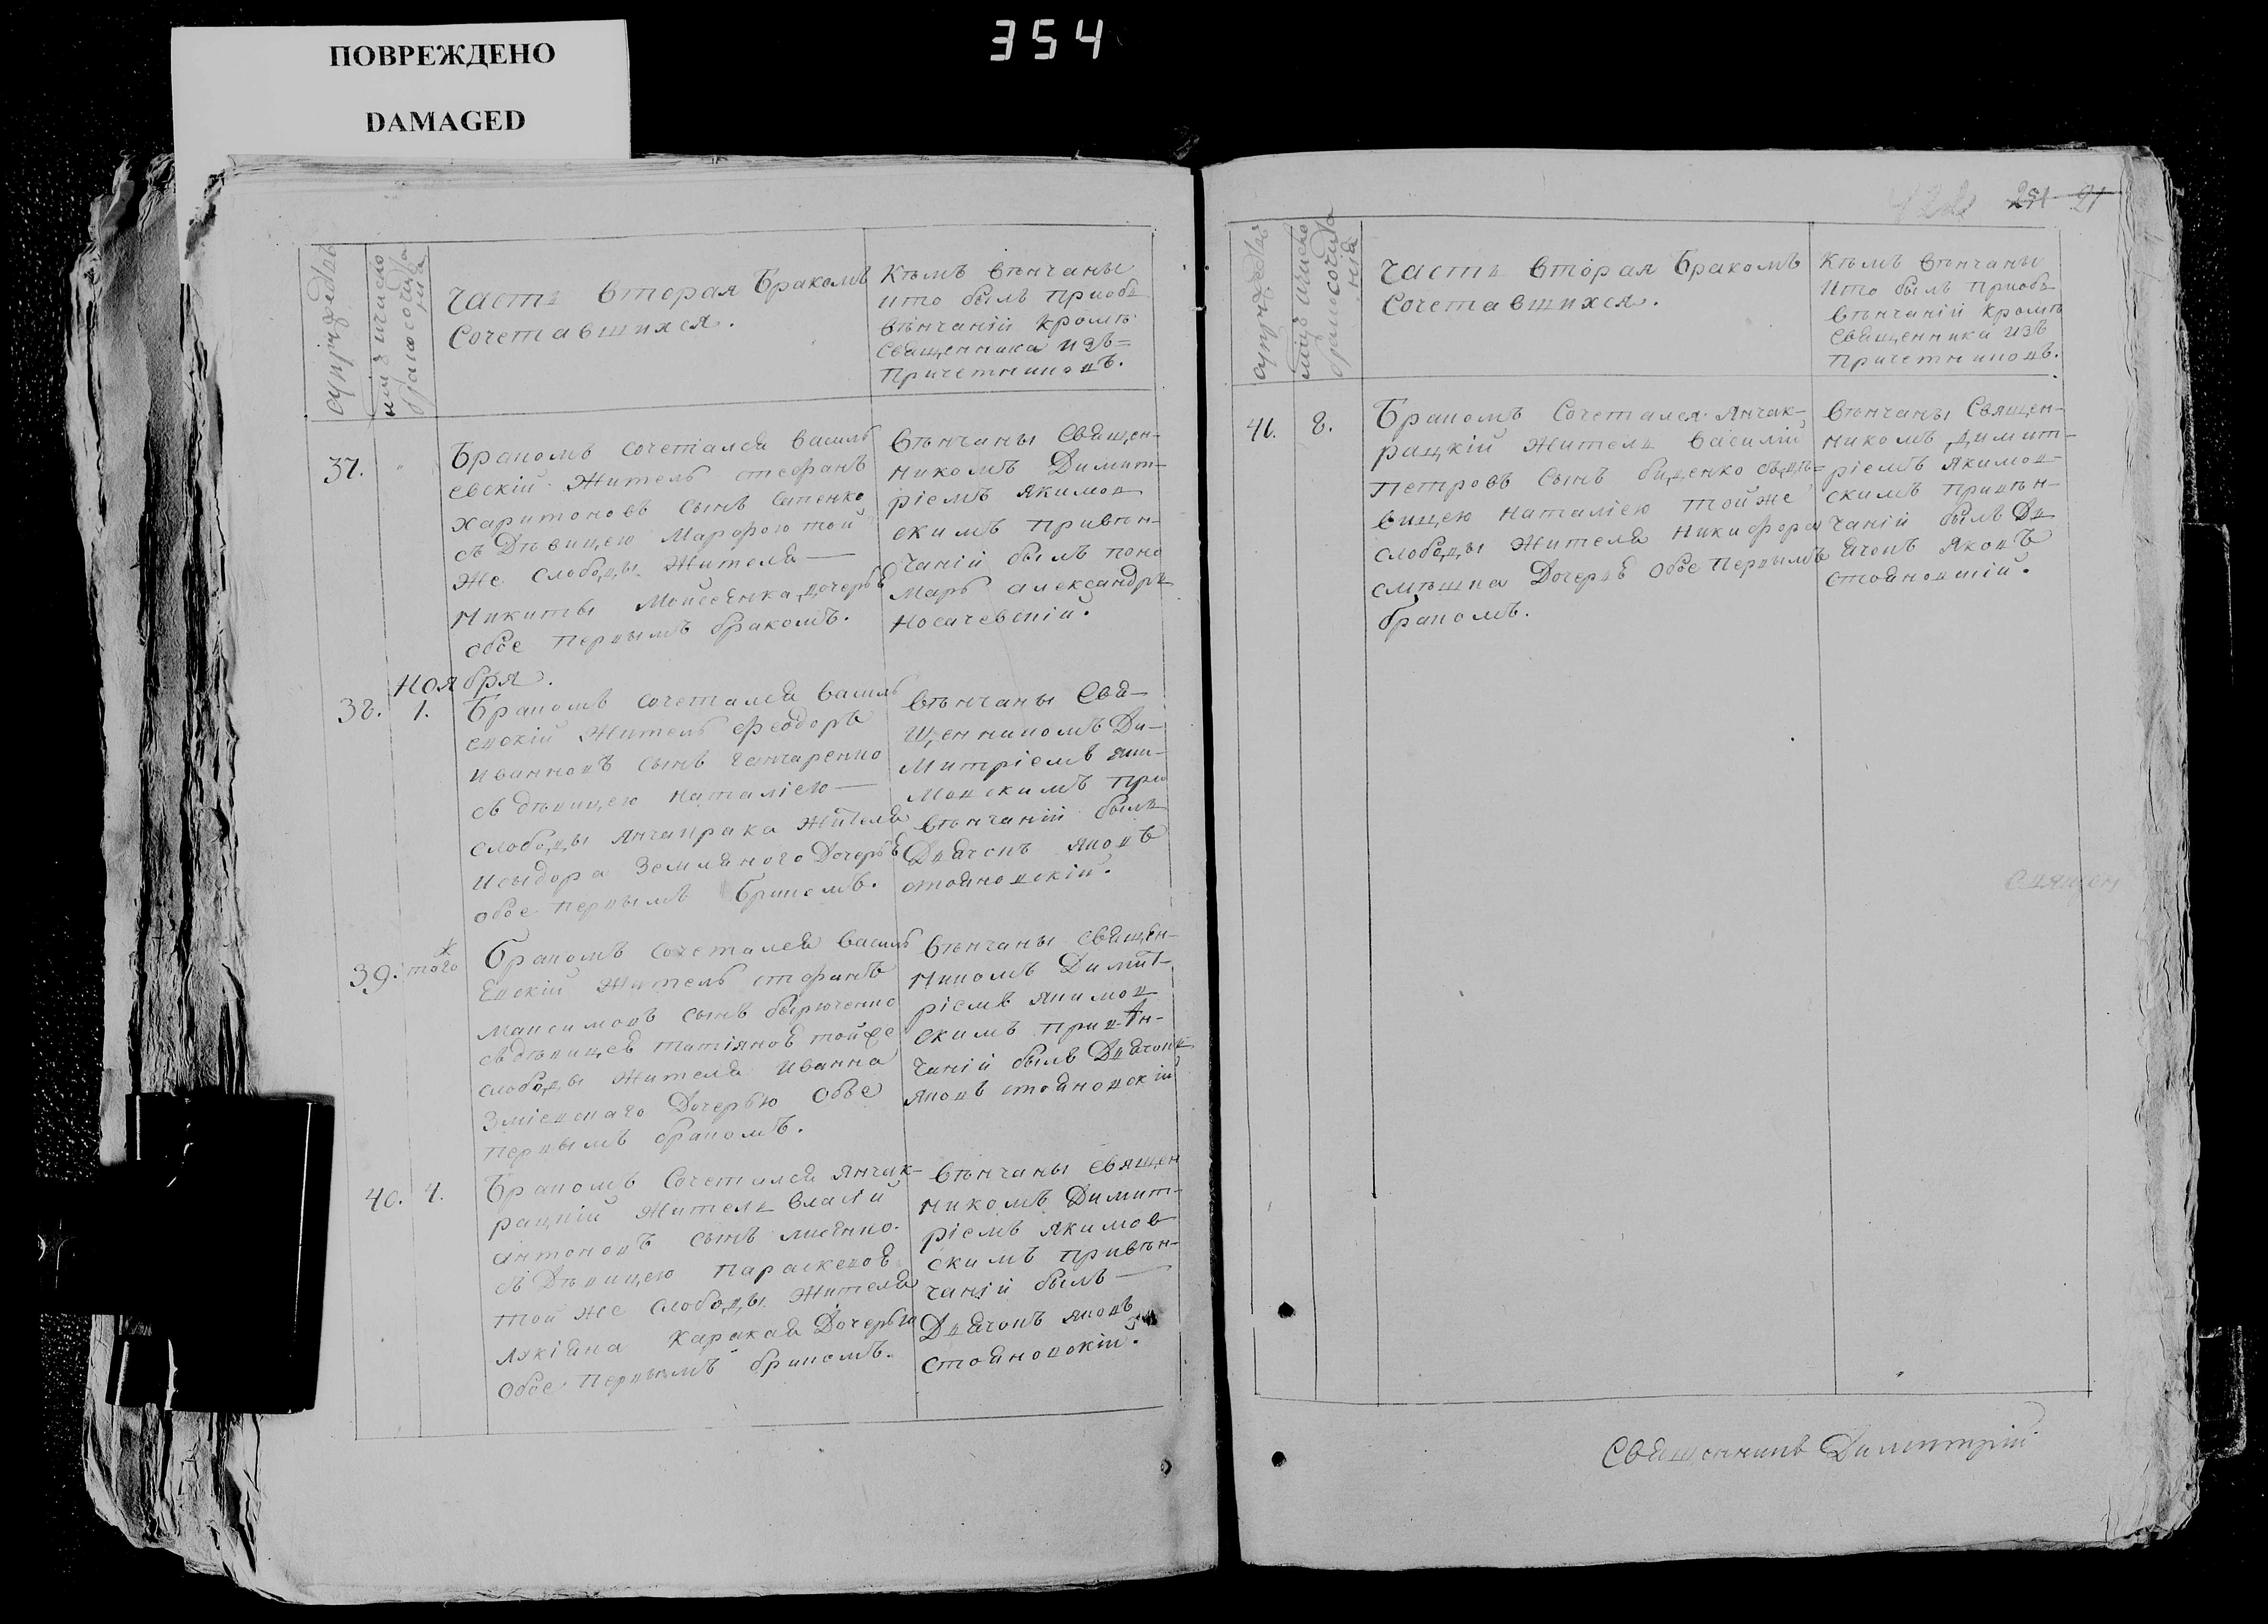 ПОВРЕЖДЕНО
DAMAGED
354
супружествъ
часть вторая Бракомъ
Сочетавшихся.
Кѣмъ вѣнчаны
и кто былъ приобѣ
вѣнчаній кромѣ
священника изъ=
причетниковъ.
37.
Бракомъ сочетался василь
евскій житель стефанъ
харитоновъ сынъ
съ Дѣвицею Марфою той
же слободы жителя —
Никиты Мойсеенка дочерью
обое первымъ бракомъ.
вѣнчаны Священ-
никомъ Димит-
ріемъ якимов
скимъ привѣн-
чаній былъ поно
марь александръ
Носачевскій.
Ноября.
38. 1.
Бракомъ сочетался василь
евскій житель феодоръ
иванновъ сынъ ганчаренко
съ дѣвицею наталіею —
слободы янчакрака жителя
исыдора Земляного Дочерью
обое первымъ бракомъ.
вѣнчаны Свя-
щенникомъ Ди-
митріемъ яки-
мовскимъ при
вѣнчаній былъ
Дьячокъ яковъ
стояновскій.
39. того ж
Бракомъ сочетался василь
евскій житель стефанъ
максимовъ сынъ бырюченко
съ дѣвицею татіяною тойже
слободы жителя иванна
Зміевскаго Дочерью обое
первымъ бракомъ.
вѣнчаны священ-
никомъ Димит-
ріемъ якимов
скимъ привѣн-
чаній былъ Дьячокъ
яковъ стояновскій
40. 4.
Бракомъ Сочетался янчак-
рацкій житель власій
антоновъ сынъ лисенко.
съ Дѣвицею параскевою
той же слободы жителя
лукіяна каракая Дочерью
обое первымъ бракомъ.
вѣнчаны священ
никомъ Димит-
ріемъ якимов
скимъ привѣн-
чаній былъ —
Дьячокъ яковъ
стояновскій.
251 21
супружествъ
часть вторая Бракомъ
Сочетавшихся.
Кѣмъ вѣнчаны
и кто былъ приобѣ
вѣнчаній кромѣ
священника изъ
причетниковъ.
41. 8.
Бракомъ Сочетался янчак-
рацкій житель василій
петровъ сынъ биденко съдѣ=
вицею наталіею той же
слободы жителя никифора
смѣшка Дочерью обое первымъ
бракомъ.
вѣнчаны Священ-
никомъ димит-
ріемъ якимов-
скимъ привѣн-
чаній былъ Дь
ячокъ яковъ
стояновскій.
священ
Священникъ Димитрій